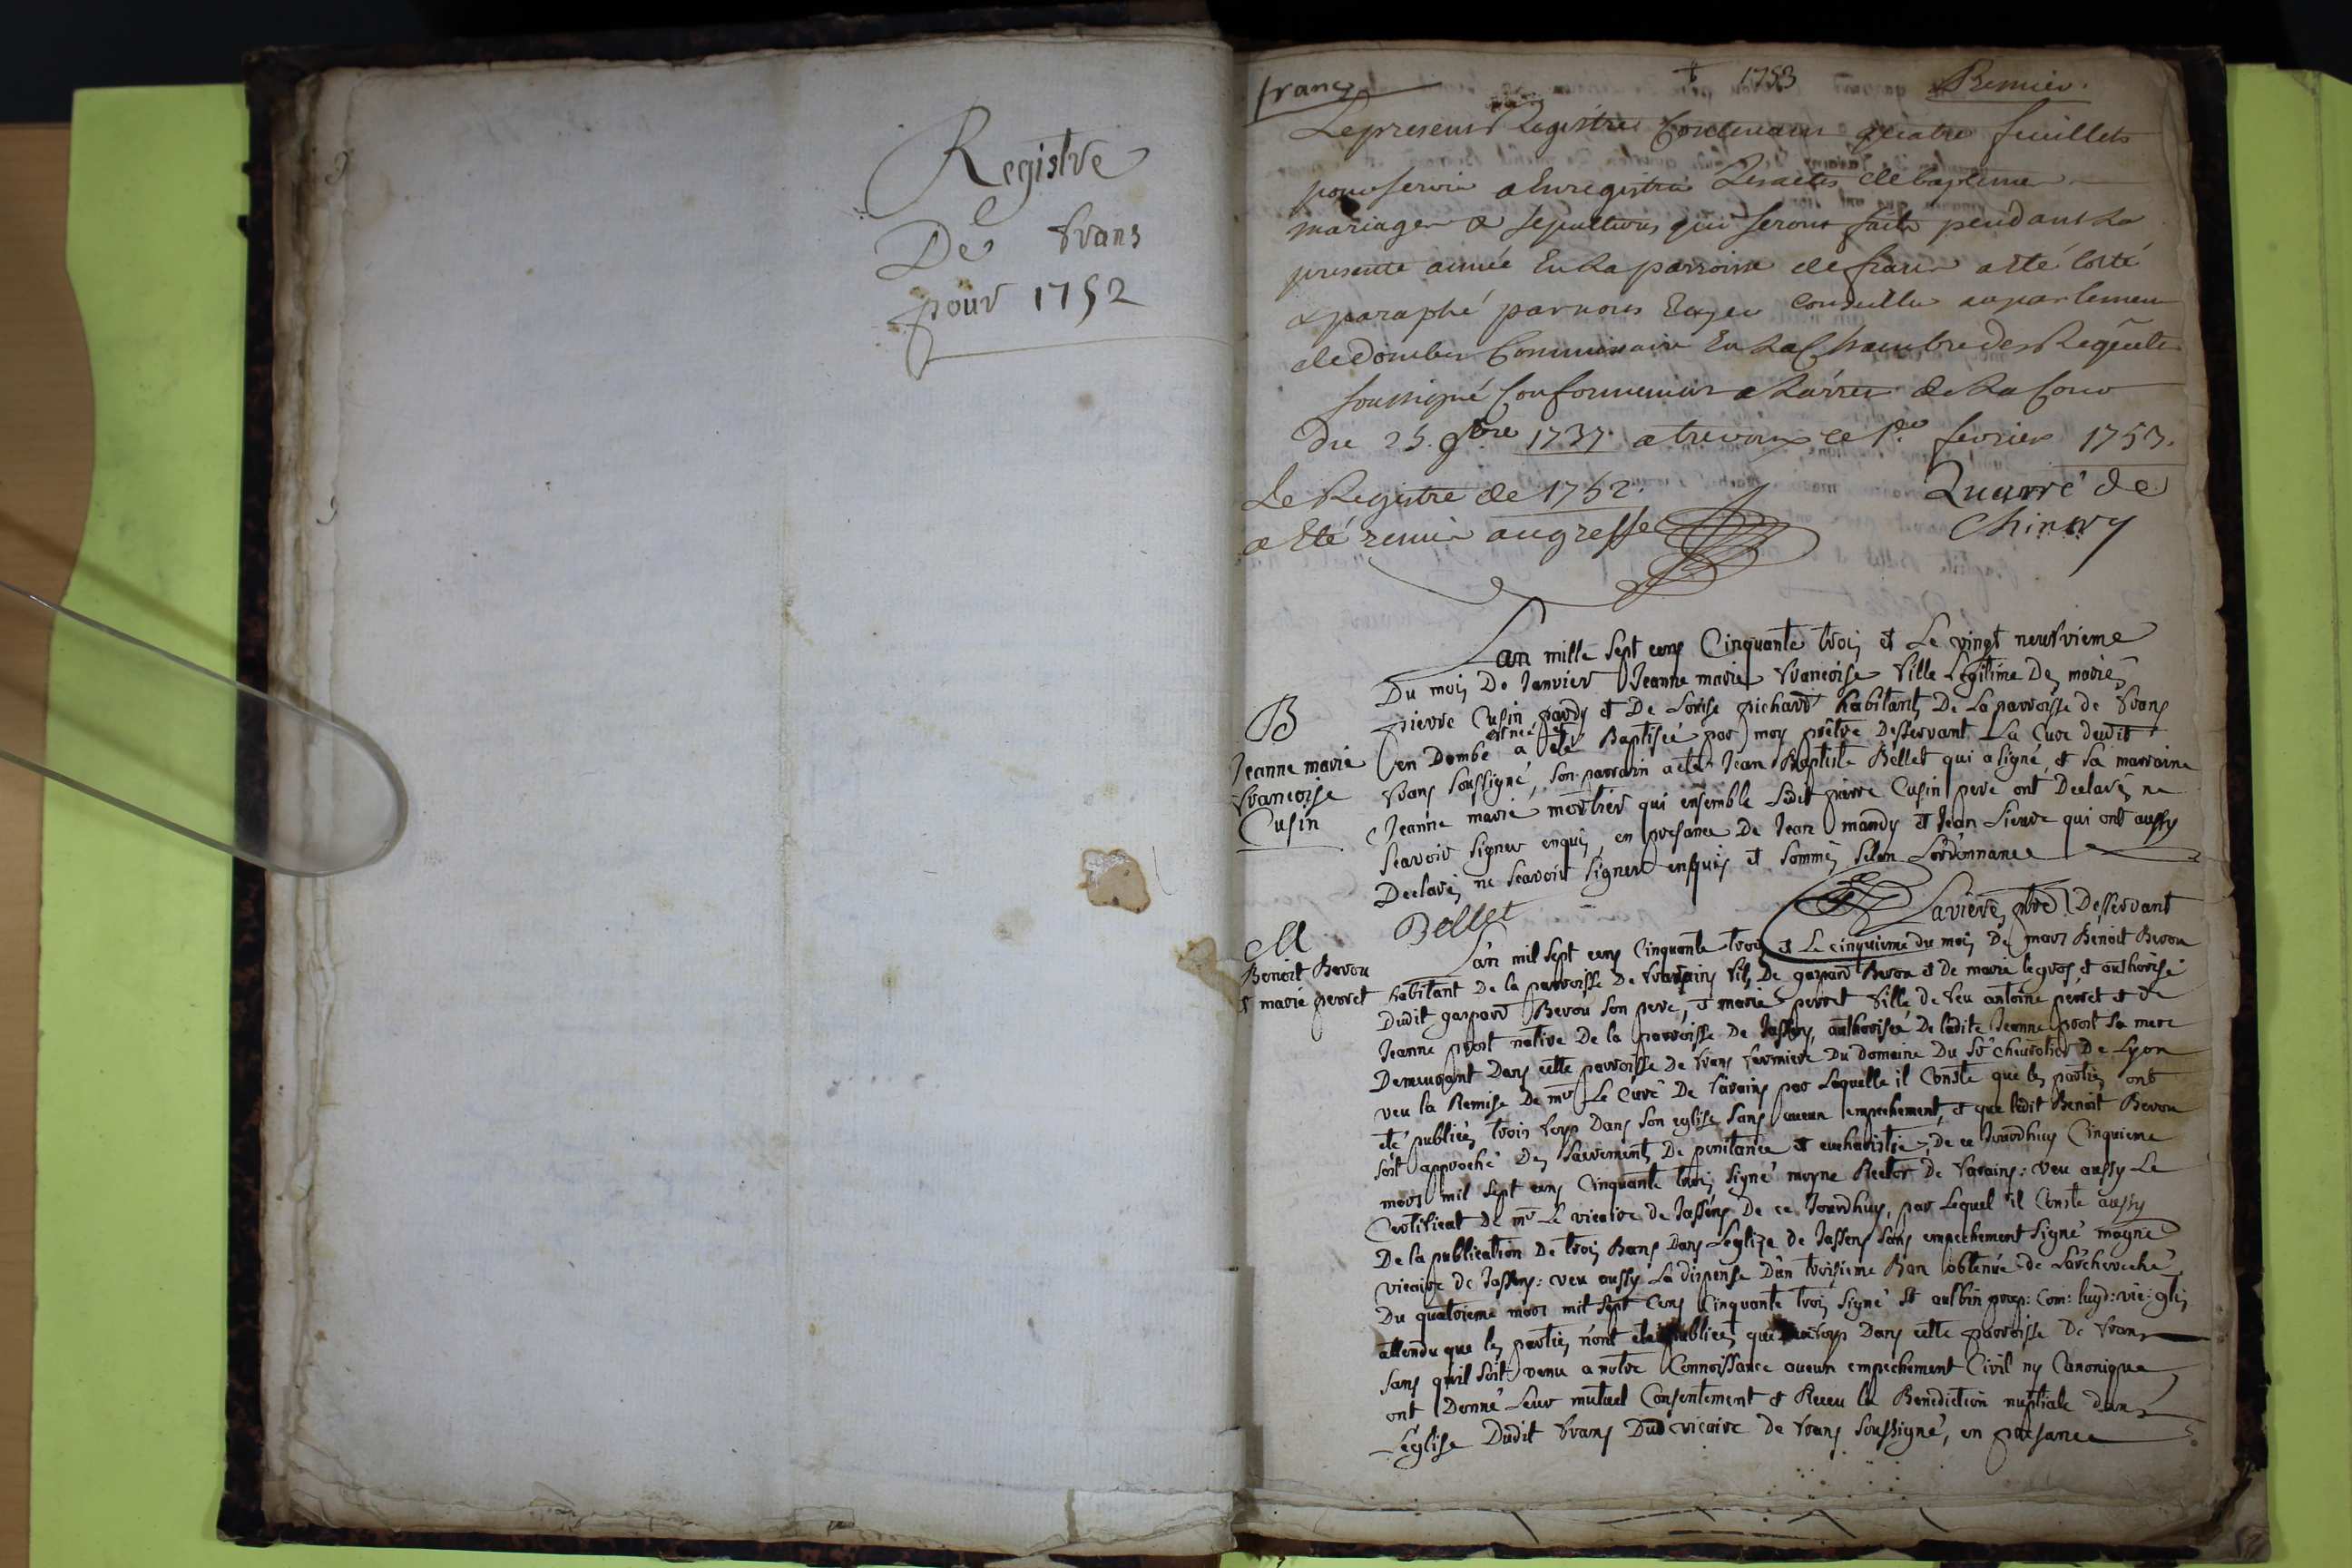 Registre
De frans
pour 1752
franc
† 1753
Premier.
Le present Registre Contenant quatre feuillets
pour servir a Enregistrer Les actes de baptemes
mariages & sepultures qui seront faits pendant La
presente année En La parroisse de frans a Eté Cotté
& paraphé par nous Ecuyer Conseiller au parlement
de Dombes Commissaire En La Chambre des Requêtes
soussigné Conformement a L'arret de La Cour
du 25. 9bre 1737. a trevoux ce 1er fevrier 1753.
Le Registre de 1752.
a Eté remis au greffe
Quarré de
Chintry
Lan mille sept cens Cinquante trois et Le vingt neufvieme
Du mois De Janvier Jeanne marie francoise fille Legitime Des mariés
pierre Cusin pardy et De Loüise pichard habitants De La parroisse de frans
en Dombe est née et a eté Baptisée par moy prêtre Desservant La Cure dudit
frans soussigné, son parrain a eté Jean Baptiste Bellet qui a signé, et sa marraine
Jeanne marie mortier qui ensemble Ledit pierre Cusin pere ont Declarés ne
scavoir signer enquis, en presance De Jean mandy et Jean Lieure qui ont aussy
Declarés ne scavoir signer enquis et sommés selon Lordonnance
B
Jeanne marie
francoise
Cusin
Bellet
Lavieres ptre Desservant
M
Benoit Berou
& marie perret
L'an mil sept cens Cinquante trois et Le cinquieme du mois De mars Benoit Berou
habitant De la parroisse De farains fils De gaspard Berou et de marie legros, et authorisé
Dudit gaspard Berou son pere, et marie perret fille de feu antoine perret et de
Jeanne prost native De la parroisse De Jassens, authorisée De ladite Jeanne prost sa mere
Demeurant Dans cette parroisse de frans fermiere Du domaine Du Sr cheurotier De Lyon
veu la Remise De mr Le Curé De farains par Laquelle il Conste que les parties ont
eté publiées trois foys Dans son eglise sans aucun empechement, et que ledit Benoit Berou
s'est approché Des sacrements De penitance et eucharistie, De ce Jourdhuy Cinquieme
mars mil sept cens Cinquante trois signé moyne Rector De farains: veu aussy Le
Certificat De mr Le vicaire de Jassens De ce Jourdhuy, par Lequel il Conste aussy
De la publication De trois Bans Dans Leglize de Jassens sans empechement signé magne
vicaire de Jassens: veu aussy La dispense D'un troisieme Ban obtenüe de L'archeveché,
Du quatrieme mars mil sept Cens Cinquante trois signé St aulbin prep: Com: lugd: vic: glis
attendu que les parties n'ont eté publiées que foys Dans cette parroisse De frans
sans quil soit venu a notre Connoissance aucun empechement Civil ny Canonique
ont Donné Leur mutuel Consentement et Receu la Benediction nuptiale dans
L'église Dudit frans Dud vicaire de frans soussigné, en presance